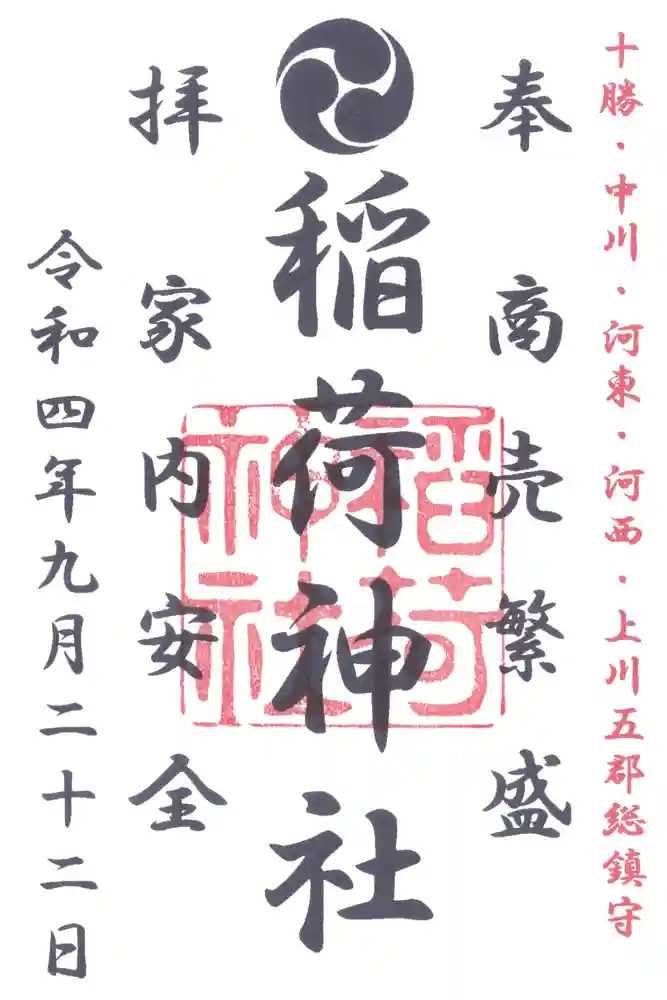 十勝・中川・河東・河西・上川五郡総鎮守
奉拝
商売繁盛
稲荷神社
稲荷神社
家内安全
令和四年九月二十二日